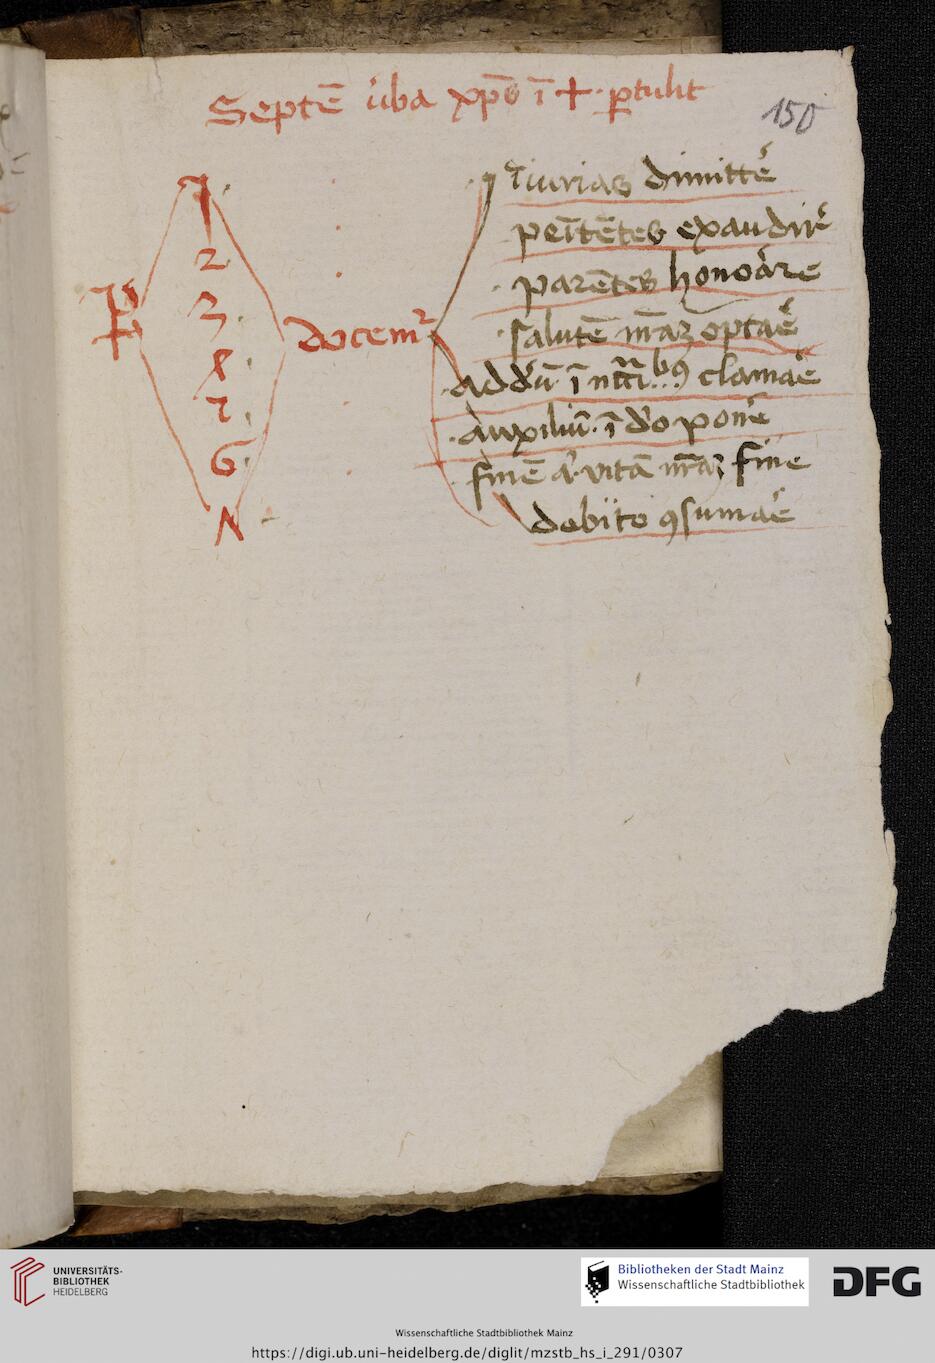 Septē v̇ba xp̄s ī ✝ ꝑtulit
150
P
1
2
3
8
7
6
Λ
docemr̉
Iīurias dimittẽ
penītētes exaudirẽ
parētes honorare
salutē nr̄aꝫ optaẽ
ad dn̄ ī clamaẽ
auxiliū ī do ponẽ
finē vitā nr̄aꝫ fine
debito ꝯsumaẽ
UNIVERSITÄTS-
BIBLIOTHEK
HEIDELBERG
Bibliotheken der Stadt Mainz
Wissenschaftliche Stadtbibliothek
DFG
Wissenschaftliche Stadtbibliothek Mainz
https://digi.ub.uni-heidelberg.de/diglit/mzstb_hs_i_291/0307